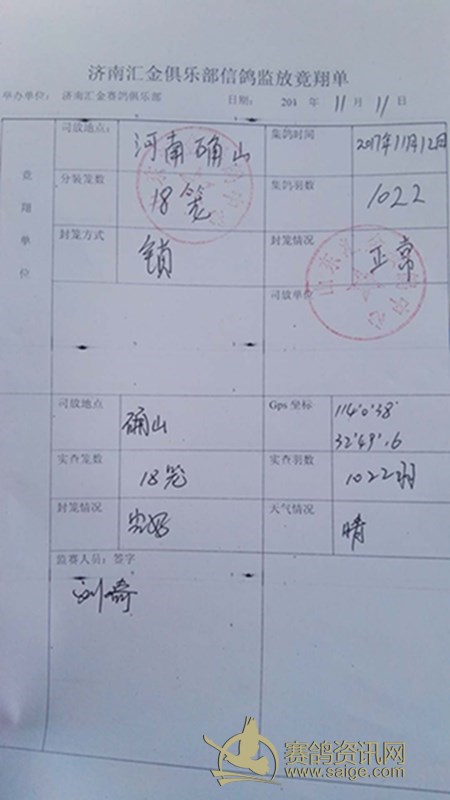 济南汇金俱乐部信鸽监放竟翔单
举办单位： 济南汇金赛鸽俱乐部 日期： 201 年 11 月 11 日
竟翔单位
司放地点： 河南确山 集鸽时间 2017年11月12日
分装笼数 18笼 集鸽羽数 1022
封笼方式 锁 封笼情况 正常
司放单位
司放地点 确山 Gps 坐标 114°0'38'
32°49'.6
实查笼数 18笼 实查羽数 1022羽
封笼情况 完好 天气情况 晴
监赛人员：签字
刘奇
赛鸽资讯网
www.saigc.com